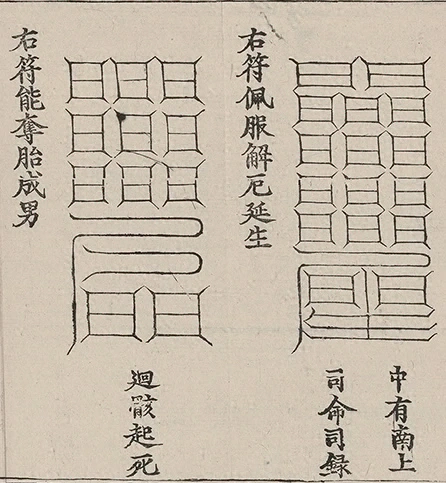 中有南上
司命司録
右符佩服解厄延生
迴骸起死
右符能奪胎成男